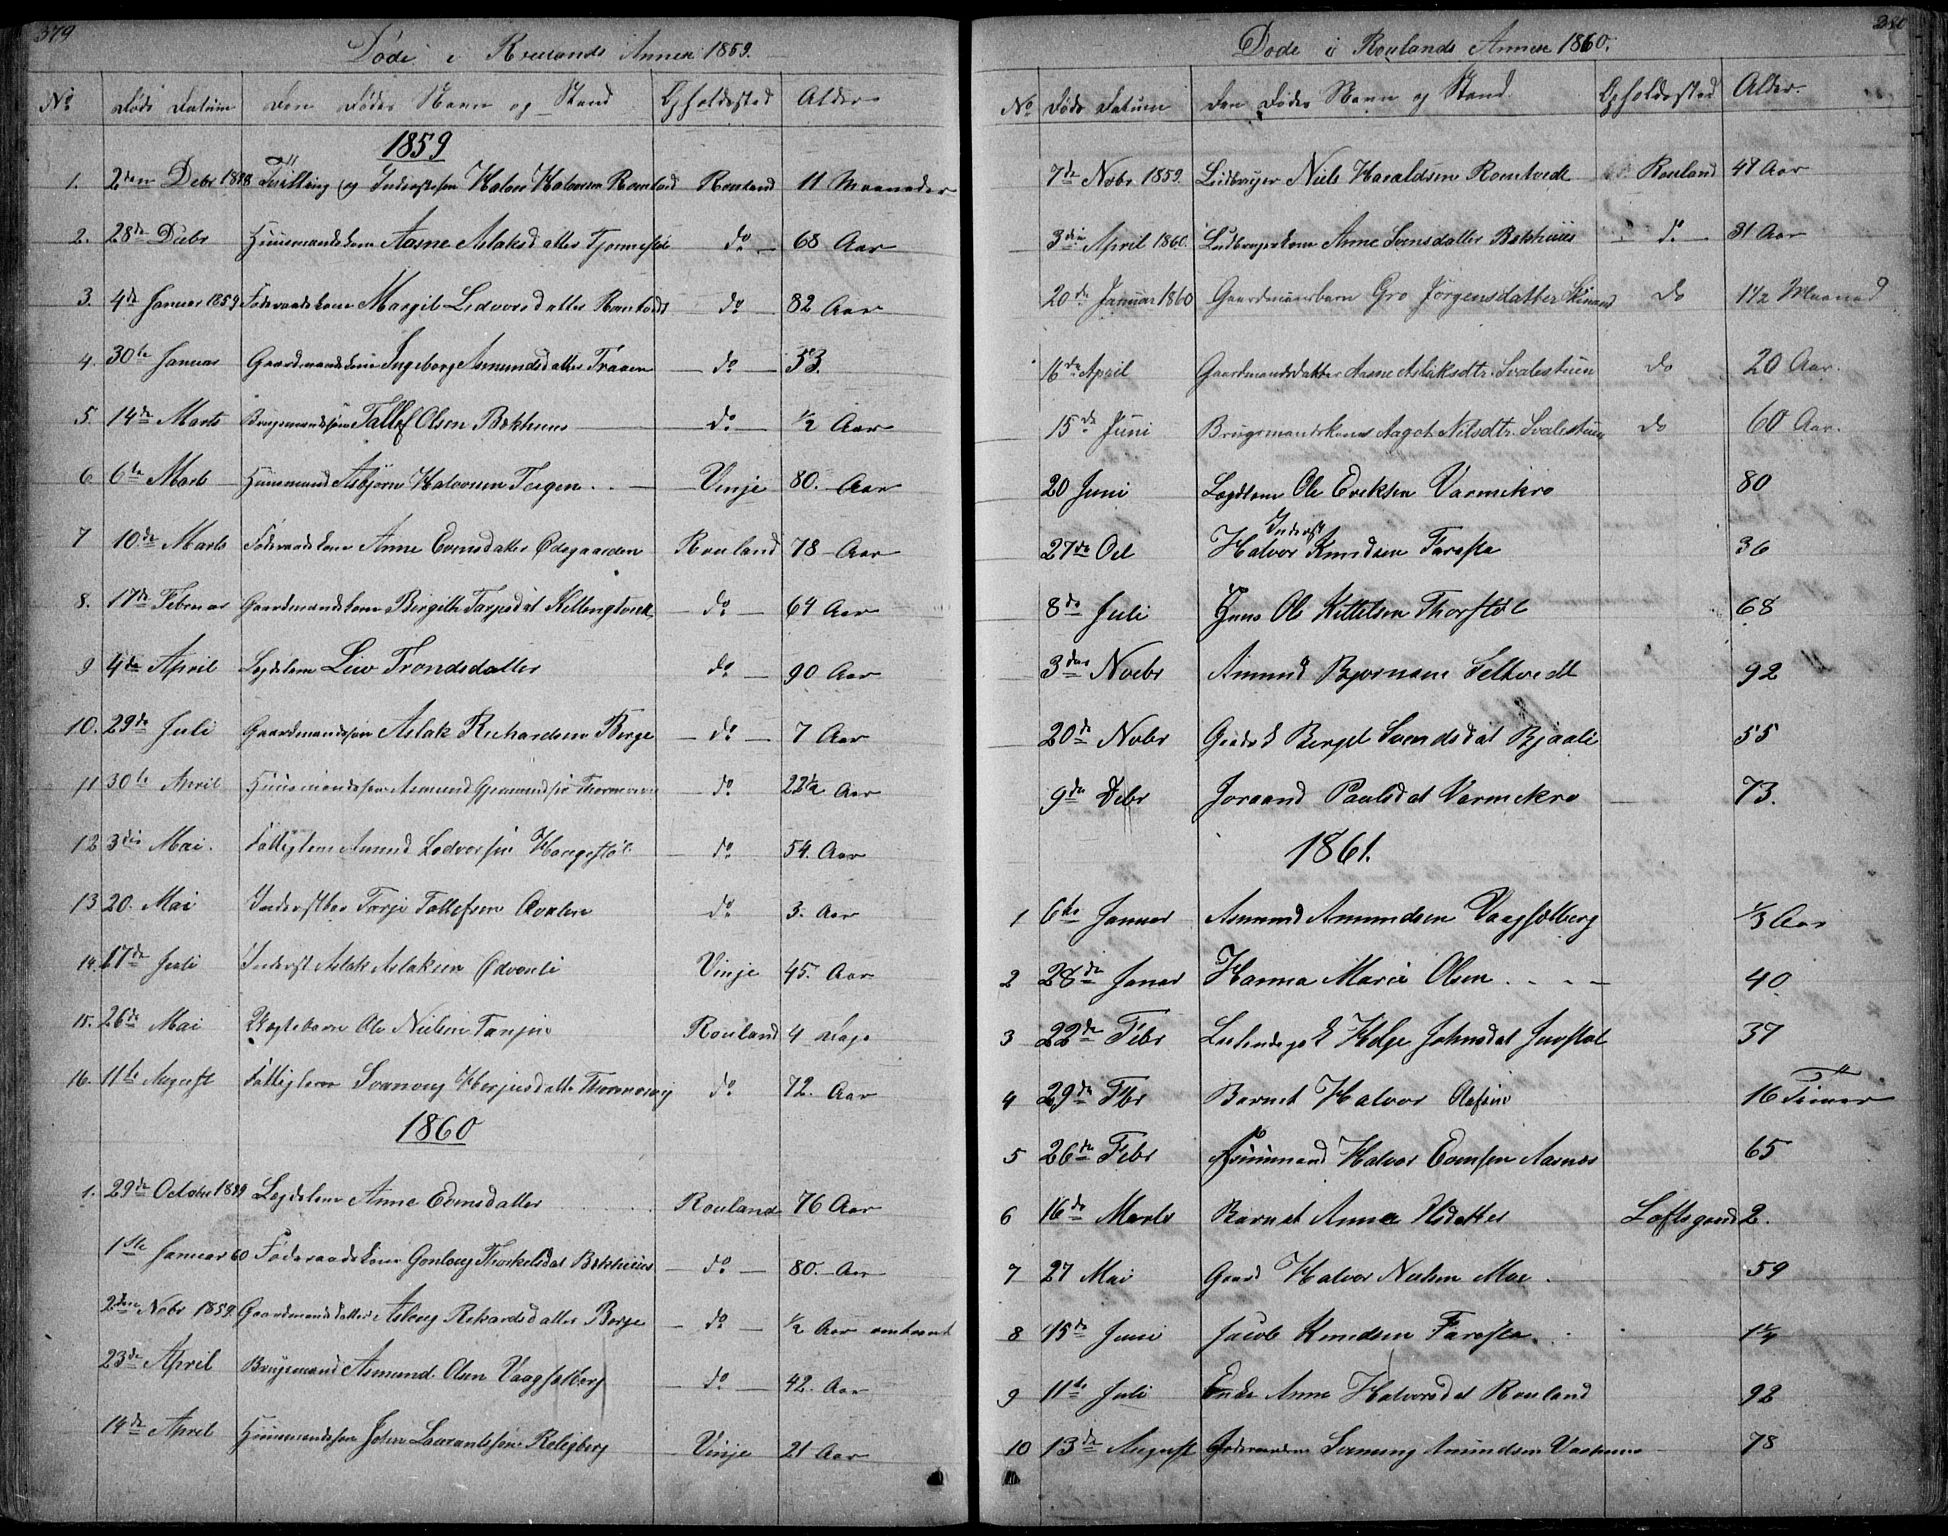 379
Døde i Roulands Annex 1859.
No Døds Datum Den Dødes Navn og Stand Opholdssted Alder
1859
1. 2den Debr 1858 Tvilling og Inderstesøn Halvor Halvorsen Rouland Rouland 11 Maaneder
2. 28de Debr Huusmandskone Aasne Aslaksdatter do 68 Aar
3. 4de Januar 1859 Føderaadskone Margit Ledvorsdatter Romtvedt do 82 Aar
4. 30te Januar Gaardmandskone Ingeborg Asmundsdatter Traaen do 53.
5. 14de Marts Brugsmandssøn Tallef Olsen Bekhuus do ½ Aar
6 6te Marts Huusmand Asbjørn Halvorsen Teigen Vinje 80. Aar
7 10de Marts Føderaadskone Anne Evensdatter Ødegaarden Rouland 78 Aar
8. 17de Februar Gaardmandskone Bergith Tarjesdat do 64 Aar
9 4de April Legdslem Liv Trondsdatter do 90 Aar
10. 29de Juli Gaardmandssøn Aslak Richardsen Berge do 7 Aar
11 30te April Huusmandssøn Asmund do 22½ Aar
12 3die Mai. Fattiglem Amund Ledvorsøn do 54. Aar
13 20. Mai Inderstbar Torje Tallefsen do 3. Aar
14. 17de Juli Inderst Aslak Aslaksen Vinje 45. Aar
15. 26de Mai Ole Nielsen Rouland 4 Dage
16. 11te August Fattiglem Svanoug do 72. Aar
1860
1. 29de Octobr 1859 Legdslem Anne Evensdatter Rouland 76 Aar
1ste Januar 60 Føderaadskone Gonloug Thorkelsdat Bekhuus do 80. Aar
2den Nobr 1859. Gaardmandsdatter Aslaug Rikardsdatter Berge do ½ Aar omtrent
23de April Brugsmand Asmund Olsen do 42. Aar
14de April Huusmandssøn John Vinje 21 Aar
380
Døde i Roulands Annex 1860.
No Døds Datum Den Dødes Navn og Stand Opholdssted Alder.
7de Nobr 1859. Leilbruger Niels Haraldsen Romtvedt Rouland 47 Aar
3die April 1860. Leilbrugerkone Anne Svensdatter Bekhuus do 31 Aar
20de Januar 1860 Gaardmansbarn Gro Jørgensdatter do 1½ Maaned
16de April Gaardmandsdatter Aasne Aslaksdtr. Svalestuen do 20 Aar.
15de Juni Brugsmandskone Aagot Nilsdtr. Svalestuen do 60 Aar.
20 Juni Lægdlem Ole Eriksen Varmekro 80
27de Oct Inderst Halvor Knudsen Farofta 36
8de Juli Huus Ole Kittelsen 68
3die Noebr Amund Bjørnsen 92
20de Nobr Bergit Svendsdat Bjaali 55
9de Debr Joraand Paulsdat Varmekro 73.
1861.
1 6te Januar Asmund Amundsen 1/3 Aar
2 28de Januar Hanna Marie Olsen 40
3 22de Febr Helge Johnsdat 37
4 29de Fbr Barnet Halvor Olafsen 16 Timer
5 26de Febr Huusmand Halvor Evensen Aasnes 65
6 16de Marts Barnet Anne Loftsgaard 2.
7 27 Mai Gaard Halvor Nielsen Moe 59
8 15de Juni Jacob Knudsen Farofta 1¼
9 11te Juli Enke Anne Halvorsdat Rouland 92
10 13de August Svanoug 78